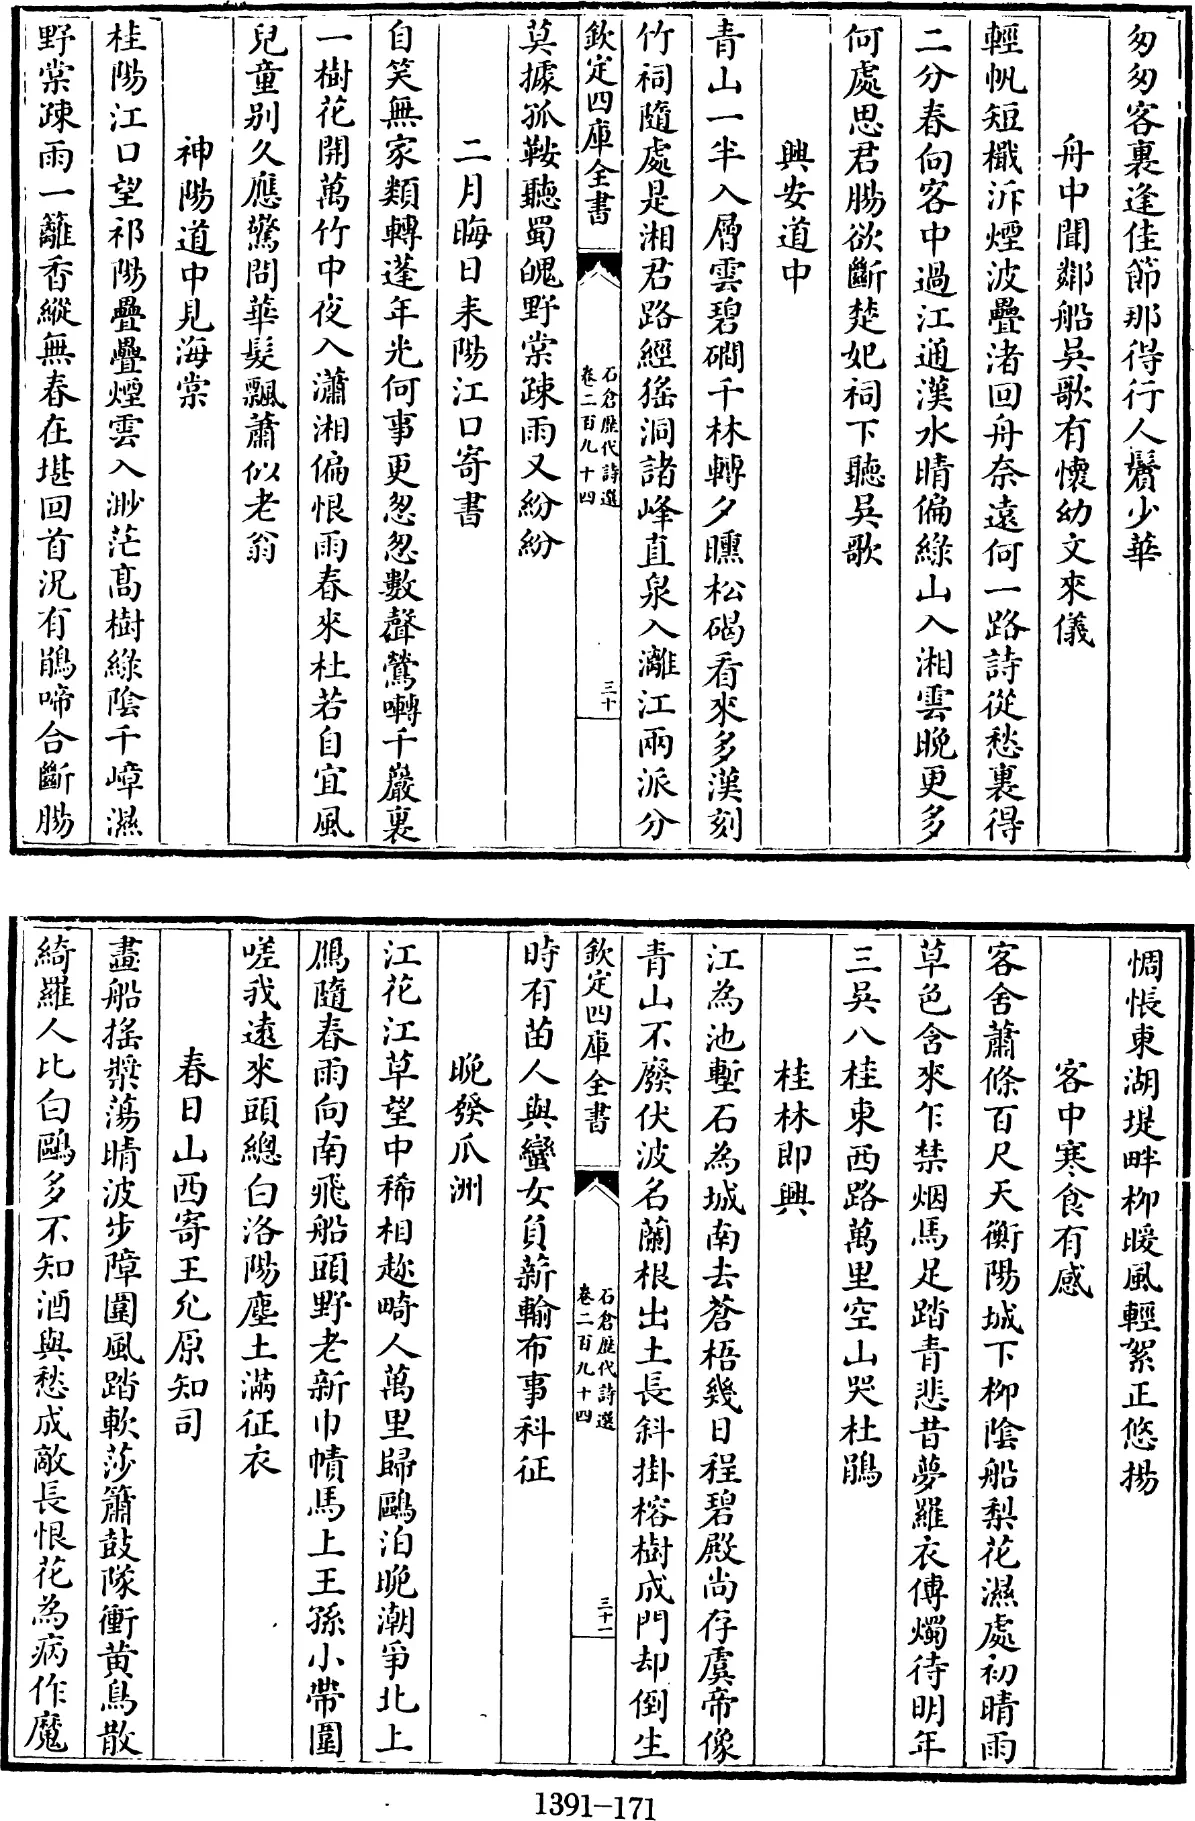 匆匆客裏逢佳節那得行人鬢少華
舟中聞鄰船吳歌有懷幼文來儀
輕帆短檝泝煙波疊渚回舟奈遠何一路詩從愁裏得
二分春向客中過江通漢水晴偏綠山入湘雲晚更多
何處思君腸欲斷楚妃祠下聽吳歌
興安道中
青山一半入層雲碧磵千林轉夕曛松碣看來多漢刻
竹祠隨處是湘君路經猺洞諸峰直泉入灕江兩派分
欽定四庫全書
石倉歷代詩選
卷二百九十四
三十
莫據孤鞍聽蜀魄野棠疎雨又紛紛
二月晦日耒陽江口寄書
自笑無家類轉蓬年光何事更怱怱數聲鶯囀千巖裏
一樹花開萬竹中夜入瀟湘偏恨雨春來杜若自宜風
兒童别久應驚問華髮飄蕭似老翁
神陽道中見海棠
桂陽江口望祁陽疊疊煙雲入渺茫髙樹綠陰千嶂濕
野棠疎雨一籬香縱無春在堪回首況有鵑啼合斷腸
惆悵東湖堤畔柳暖風輕絮正悠揚
客中寒食有感
客舍蕭條百尺天衡陽城下柳陰船梨花濕處初晴雨
草色含來乍禁烟馬足踏青悲昔夢羅衣傳燭待明年
三吳八桂東西路萬里空山哭杜鵑
桂林即興
江為池塹石為城南去蒼梧幾日程碧殿尚存虞帝像
青山不廢伏波名蘭根出土長斜掛榕樹成門却倒生
欽定四庫全書
石倉歷代詩選
卷二百九十四
三十一
時有苗人與蠻女負薪輸布事科征
晚發瓜洲
江花江草望中稀相趂畸人萬里歸鷗泊晚潮爭北上
鴈隨春雨向南飛船頭野老新巾幘馬上王孫小帶圍
嗟我遠來頭總白洛陽塵土滿征衣
春日山西寄王允原知司
畫船搖槳蕩晴波步障圍風踏軟莎簫鼓隊衝黄鳥散
綺羅人比白鷗多不知酒與愁成敵長恨花為病作魔
1391-171